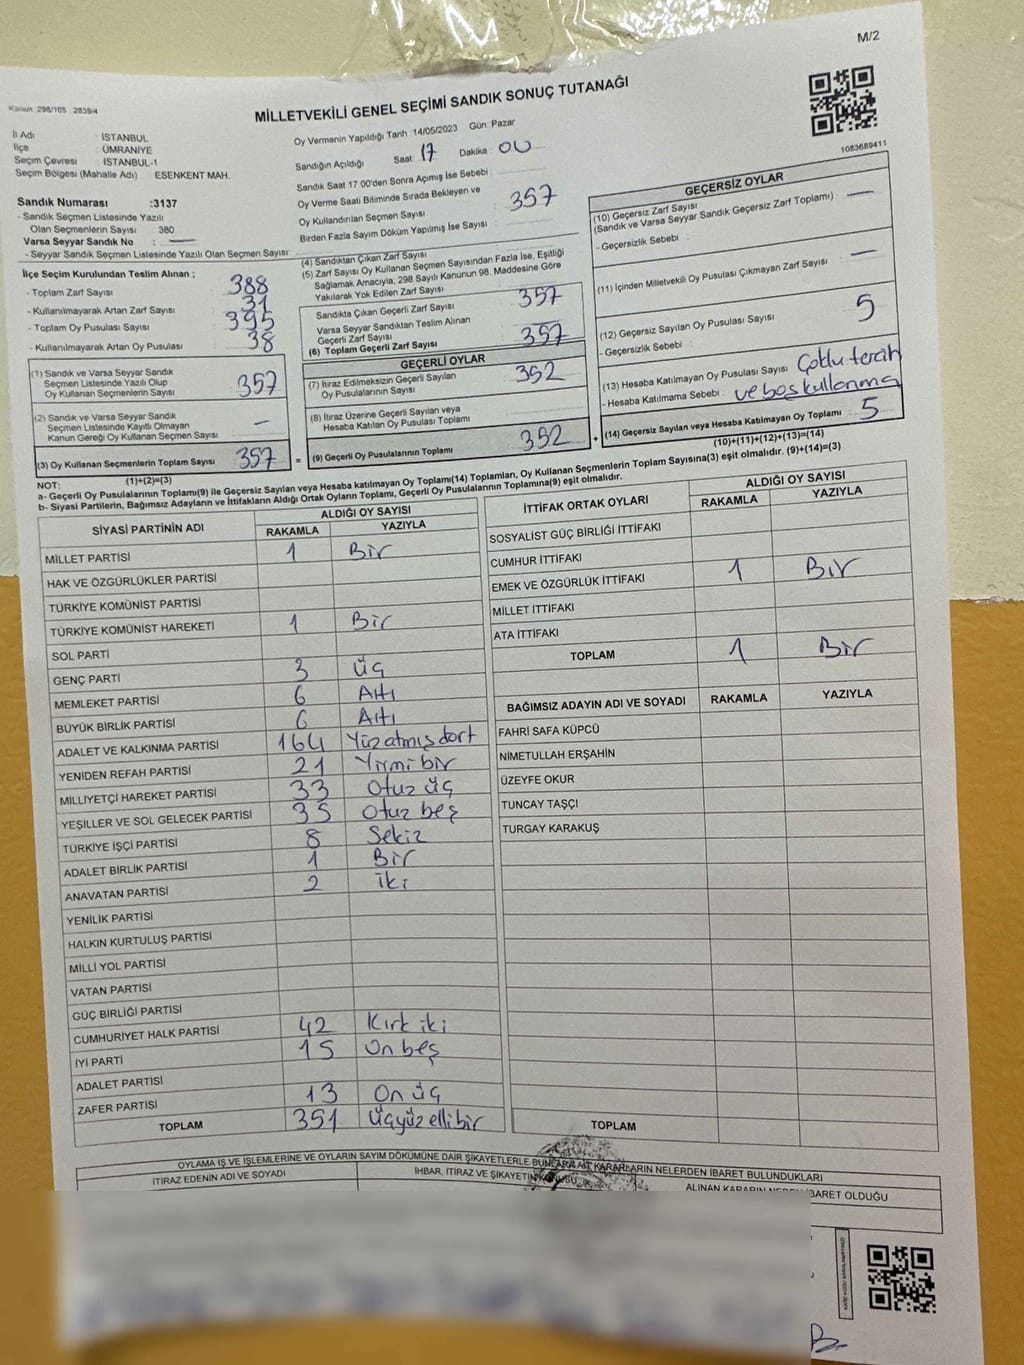 M/2
Kanun 298/105 2839/4
MİLLETVEKİLİ GENEL SEÇİMİ SANDIK SONUÇ TUTANAĞI
1083689411
İl Adı : İSTANBUL
İlçe : ÜMRANİYE
Seçim Çevresi : İSTANBUL-1
Seçim Bölgesi (Mahalle Adı) ESENKENT MAH.
Sandık Numarası :3137
- Sandık Seçmen Listesinde Yazılı
Olan Seçmenlerin Sayısı : 380
Varsa Seyyar Sandık No : —
- Seyyar Sandık Seçmen Listesinde Yazılı Olan Seçmen Sayısı
Oy Vermenin Yapıldığı Tarih :14/05/2023 Gün: Pazar
Sandığın Açıldığı Saat : 17 Dakika : 00
Sandık Saat 17 00'den Sonra Açımış İse Sebebi :
Oy Verme Saati Bitiminde Sırada Bekleyen ve
Oy Kullandırılan Seçmen Sayısı : 357
Birden Fazla Sayım Döküm Yapılmış İse Sayısı :
İlçe Seçim Kurulundan Teslim Alınan ;
- Toplam Zarf Sayısı : 388
- Kullanılmayarak Artan Zarf Sayısı : 31
- Toplam Oy Pusulası Sayısı : 395
- Kullanılmayarak Artan Oy Pusulası : 38
(1) Sandık ve Varsa Seyyar Sandık
Seçmen Listesinde Yazılı Olup
Oy Kullanan Seçmenlerin Sayısı : 357
(2) Sandık ve Varsa Seyyar Sandık
Seçmen Listesinde Kayıtlı Olmayan
Kanun Gereği Oy Kullanan Seçmen Sayısı : —
(3) Oy Kullanan Seçmenlerin Toplam Sayısı 357
(1)+(2)=(3)
(4) Sandıktan Çıkan Zarf Sayısı
(5) Zarf Sayısı Oy Kullanan Seçmen Sayısından Fazla İse, Eşitliği
Sağlamak Amacıyla, 298 Sayılı Kanunun 98. Maddesine Göre
Yakılarak Yok Edilen Zarf Sayısı :
Sandıkta Çıkan Geçerli Zarf Sayısı : 357
Varsa Seyyar Sandıktan Teslim Alınan
Geçerli Zarf Sayısı :
(6) Toplam Geçerli Zarf Sayısı : 357
GEÇERLİ OYLAR
(7) İtiraz Edilmeksizin Geçerli Sayılan
Oy Pusulalarının Sayısı : 352
(8) İtiraz Üzerine Geçerli Sayılan veya
Hesaba Katılan Oy Pusulası Toplamı :
= (9) Geçerli Oy Pusulalarının Toplamı : 352 +
GEÇERSİZ OYLAR
(10) Geçersiz Zarf Sayısı
(Sandık ve Varsa Seyyar Sandık Geçersiz Zarf Toplamı) : —
- Geçersizlik Sebebi :
(11) İçinden Milletvekili Oy Pusulası Çıkmayan Zarf Sayısı : —
(12) Geçersiz Sayılan Oy Pusulası Sayısı : 5
- Geçersizlik Sebebi :
(13) Hesaba Katılmayan Oy Pusulası Sayısı : Çoklu tercih
- Hesaba Katılmama Sebebi : ve boş kullanma
(14) Geçersiz Sayılan veya Hesaba Katılmayan Oy Toplamı : 5
(10)+(11)+(12)+(13)=(14)
NOT:
a- Geçerli Oy Pusulalarının Toplamı(9) ile Geçersiz Sayılan veya Hesaba katılmayan Oy Toplamı(14) Toplamları, Oy Kullanan Seçmenlerin Toplam Sayısına(3) eşit olmalıdır. (9)+(14)=(3)
b- Siyasi Partilerin, Bağımsız Adayların ve İttifakların Aldığı Ortak Oyların Toplamı, Geçerli Oy Pusulalarının Toplamına(9) eşit olmalıdır.
SİYASİ PARTİNİN ADI ALDIĞI OY SAYISI
RAKAMLA YAZIYLA
MİLLET PARTİSİ 1 Bir
HAK VE ÖZGÜRLÜKLER PARTİSİ
TÜRKİYE KOMÜNİST PARTİSİ
TÜRKİYE KOMÜNİST HAREKETİ 1 Bir
SOL PARTİ
GENÇ PARTİ 3 üç
MEMLEKET PARTİSİ 6 Altı
BÜYÜK BİRLİK PARTİSİ 6 Altı
ADALET VE KALKINMA PARTİSİ 164 Yüzatmışdört
YENİDEN REFAH PARTİSİ 21 Yirmi bir
MİLLİYETÇİ HAREKET PARTİSİ 33 Otuz üç
YEŞİLLER VE SOL GELECEK PARTİSİ 35 Otuz beş
TÜRKİYE İŞÇİ PARTİSİ 8 Sekiz
ADALET BİRLİK PARTİSİ 1 Bir
ANAVATAN PARTİSİ 2 iki
YENİLİK PARTİSİ
HALKIN KURTULUŞ PARTİSİ
MİLLİ YOL PARTİSİ
VATAN PARTİSİ
GÜÇ BİRLİĞİ PARTİSİ
CUMHURİYET HALK PARTİSİ 42 Kırk iki
İYİ PARTİ 15 On beş
ADALET PARTİSİ
ZAFER PARTİSİ 13 On üç
TOPLAM 351 Üçyüz ellibir
İTTİFAK ORTAK OYLARI ALDIĞI OY SAYISI
RAKAMLA YAZIYLA
SOSYALİST GÜÇ BİRLİĞİ İTTİFAKI
CUMHUR İTTİFAKI
EMEK VE ÖZGÜRLÜK İTTİFAKI 1 Bir
MİLLET İTTİFAKI
ATA İTTİFAKI
TOPLAM 1 Bir
BAĞIMSIZ ADAYIN ADI VE SOYADI RAKAMLA YAZIYLA
FAHRİ SAFA KÜPCÜ
NİMETULLAH ERŞAHİN
ÜZEYFE OKUR
TUNCAY TAŞÇI
TURGAY KARAKUŞ
TOPLAM
OYLAMA İŞ VE İŞLEMLERİNE VE OYLARIN SAYIM DÖKÜMÜNE DAİR ŞİKAYETLERLE BUNLARA AİT KARARLARIN NELERDEN İBARET BULUNDUKLARI
İTİRAZ EDENİN ADI VE SOYADI
İHBAR, İTİRAZ VE ŞİKAYETİN KONUSU
ALINAN KARARIN NEDEN İBARET OLDUĞU